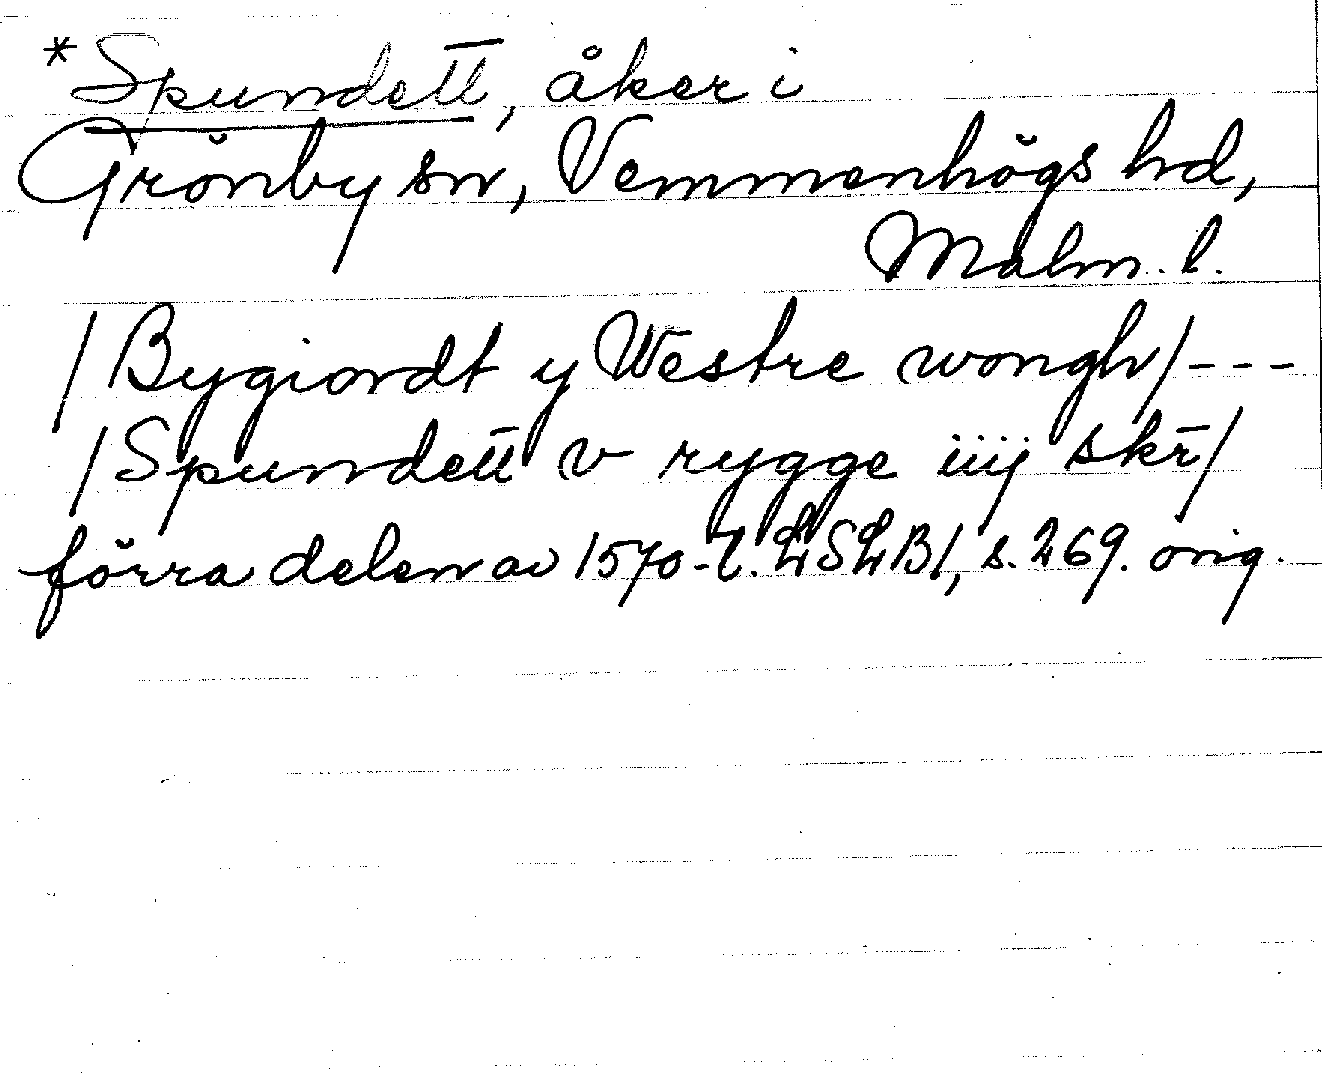 *Spundett̄, åker i
Grönby sn, Vemmenhögs hd,
Malm. l.
/Bygiordt y Westre wongh/---
/Spundett̄ v rygge iiij skr̄/
förra delen av 1570-t. LSLB1, s. 269. orig.